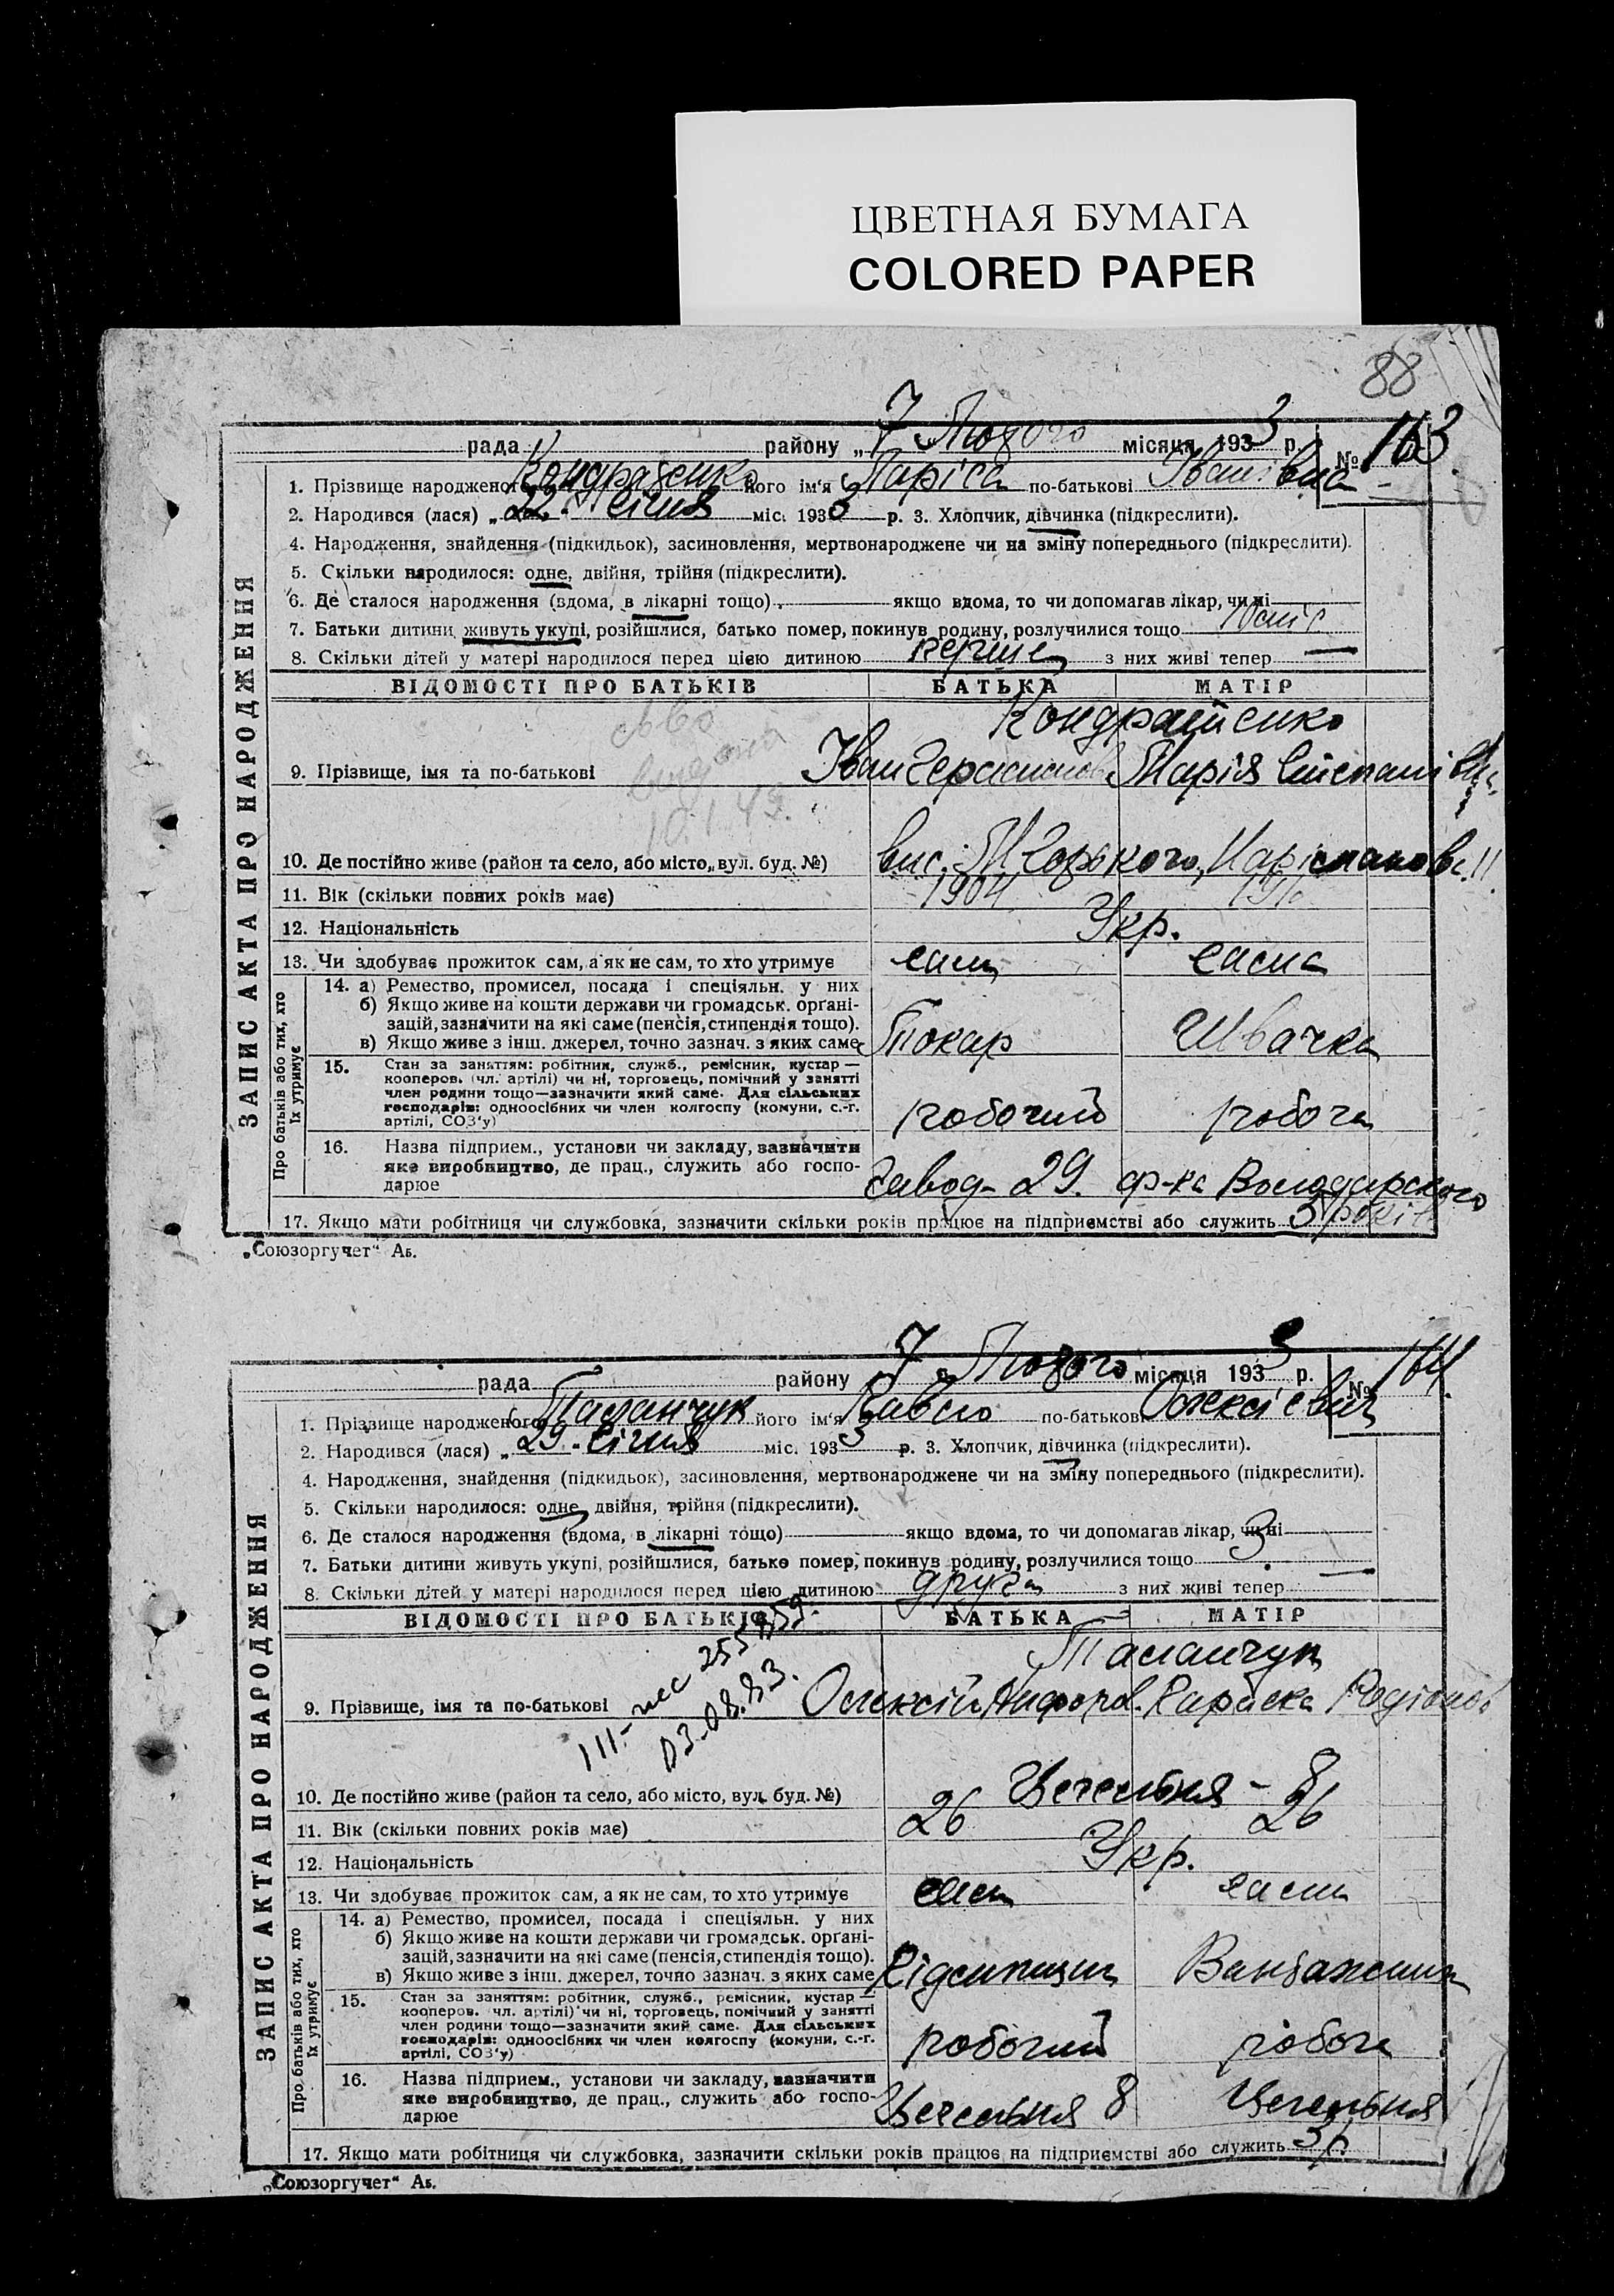 ЦВЕТНАЯ БУМАГА
COLORED PAPER
88
рада районy „ 7 Лютого місяця 1933 р. № 163
1. Прізвище народженого Кондратенко його ім'я Ларіса по-батькові Іванівна
2. Народився (лася) „ 22 Січня міс. 1933 р. 3. Хлопчик, дівчинка (підкреслити).
4. Народження, знайдення (підкидьок), засиновлення, мертвонароджене чи на зміну попереднього (підкреслити).
5. Скільки народилося: одне, двійня, трійня (підкреслити).
6. Де сталося народження (вдома, в лікарні тощо) якщо вдома, то чи допомагав лікар, чи ні
7. Батьки дитини живуть укупі, розійшлися, батько помер, покинув родину, розлучилися тощо
8. Скільки дітей у матері народилося перед цією дитиною перше з них живі тепер —
ВІДОМОСТІ ПРО БАТЬКІВ БАТЬКА МАТІР
Кондратенко
9. Прізвище, імя та по-батькові Іван Герасимов Марія Степанівна
10.1.45.
10. Де постійно живе (район та село, або місто, вул. буд. №) вис. М Горького,
11. Вік (скільки повних років має) 1904 1910
12. Національність Укр.
13. Чи здобуває прожиток сам, а як не сам, то хто утримує сам сама
14. а) Ремество, промисел, посада і спеціяльн. у них
б) Якщо живе на кошти держави чи громадськ. органі-
зацій, зазначити на які саме (пенсія, стипендія тощо).
в) Якщо живе з інш. джерел, точно зазнач. з яких саме Токар Швачка
15. Стан за заняттям: робітник, служб., ремісник, кустар —
кооперов. (чл. артілі) чи ні, торговець, помічний у занятті
член родини тощо—зазначити який саме. Для сільських
господарів: одноосібних чи член колгоспу (комуни, с.-г.
артілі, СОЗ'у) робочий робоча
16. Назва підприєм., установи чи закладу, зазначити
яке виробництво, де прац., служить або госпо-
дарює Завод- 29. ф-ка Володарского
17. Якщо мати робітниця чи службовка, зазначити скільки років працює на підприємстві або служить 3 роки
ЗАПИС АКТА ПРО НАРОДЖЕННЯ
Про батьків або тих, хто
їх утримує
„Союзоргучет“ Аб.
рада району 7 Лютого місяця 1933 р. № 164
1. Прізвище народженого його ім'я Павло по-батькові Олексієвич
2. Народився (лася) „ 29 Січня міс. 1933 р. 3. Хлопчик, дівчинка (підкреслити).
4. Народження, знайдення (підкидьок), засиновлення, мертвонароджене чи на зміну попереднього (підкреслити).
5. Скільки народилося: одне, двійня, трійня (підкреслити).
6. Де сталося народження (вдома, в лікарні тощо) якщо вдома, то чи допомагав лікар, чи ні
7. Батьки дитини живуть укупі, розійшлися, батько помер, покинув родину, розлучилися тощо 3.
8. Скільки дітей у матері народилося перед цією дитиною друга з них живі тепер —
ВІДОМОСТІ ПРО БАТЬКІВ БАТЬКА МАТІР
9. Прізвище, імя та по-батькові Олексій Родіонов
03.08.83.
10. Де постійно живе (район та село, або місто, вул. буд. №) Цегельня - 8
11. Вік (скільки повних років має) 26 26
12. Національність Укр.
13. Чи здобуває прожиток сам, а як не сам, то хто утримує сам сама
14. а) Ремество, промисел, посада і спеціяльн. у них
б) Якщо живе на кошти держави чи громадськ. органі-
зацій, зазначити на які саме (пенсія, стипендія тощо).
в) Якщо живе з інш. джерел, точно зазнач. з яких саме
15. Стан за заняттям: робітник, служб., ремісник, кустар —
кооперов. чл. артілі) чи ні, торговець, помічний у занятті
член родини тощо—зазначити який саме. Для сільських
господарів: одноосібних чи член колгоспу (комуни, с.-г.
артілі, СОЗ'у) робочий робоча
16. Назва підприєм., установи чи закладу, зазначити
яке виробництво, де прац., служить або госпо-
дарює Цегельня 8 Цегельня
17. Якщо мати робітниця чи службовка, зазначити скільки років працює на підприємстві або служить 3 р.
ЗАПИС АКТА ПРО НАРОДЖЕННЯ
Про батьків або тих, хто
їх утримує
„Союзоргучет“ Аб.